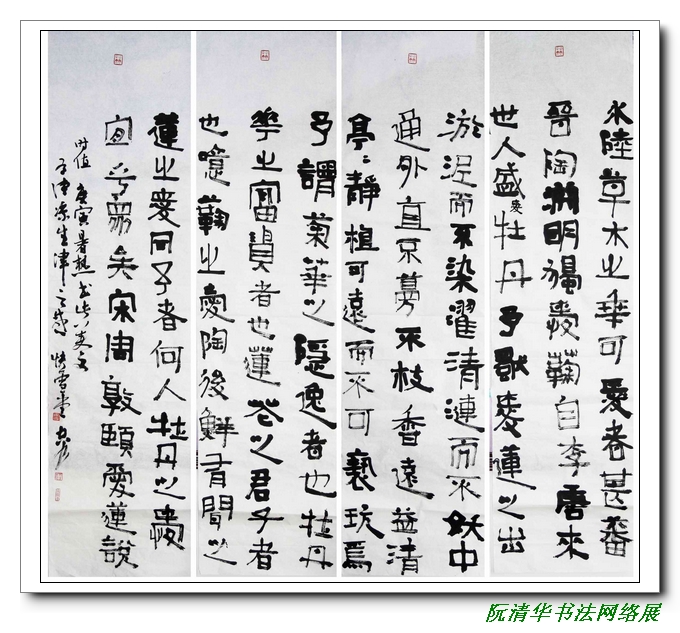 水陸草木之華可愛者甚蕃
晉陶淵明獨愛鞠自李唐來
世人盛愛牡丹予獨愛蓮之出
淤泥而不染濯清漣而不妖中
通外直不蔓不枝香遠益清
亭〻靜植可遠而不可褻玩焉
予謂菊華之隱逸者也牡丹
華之富貴者也蓮花之君子者
也噫鞠之愛陶後鮮有聞之
蓮之愛同予者何人牡丹之愛
宜乎眾矣宋周敦頤愛蓮說
時值庚寅暑熱書此
生津之感快雪堂
阮清华书法网络展